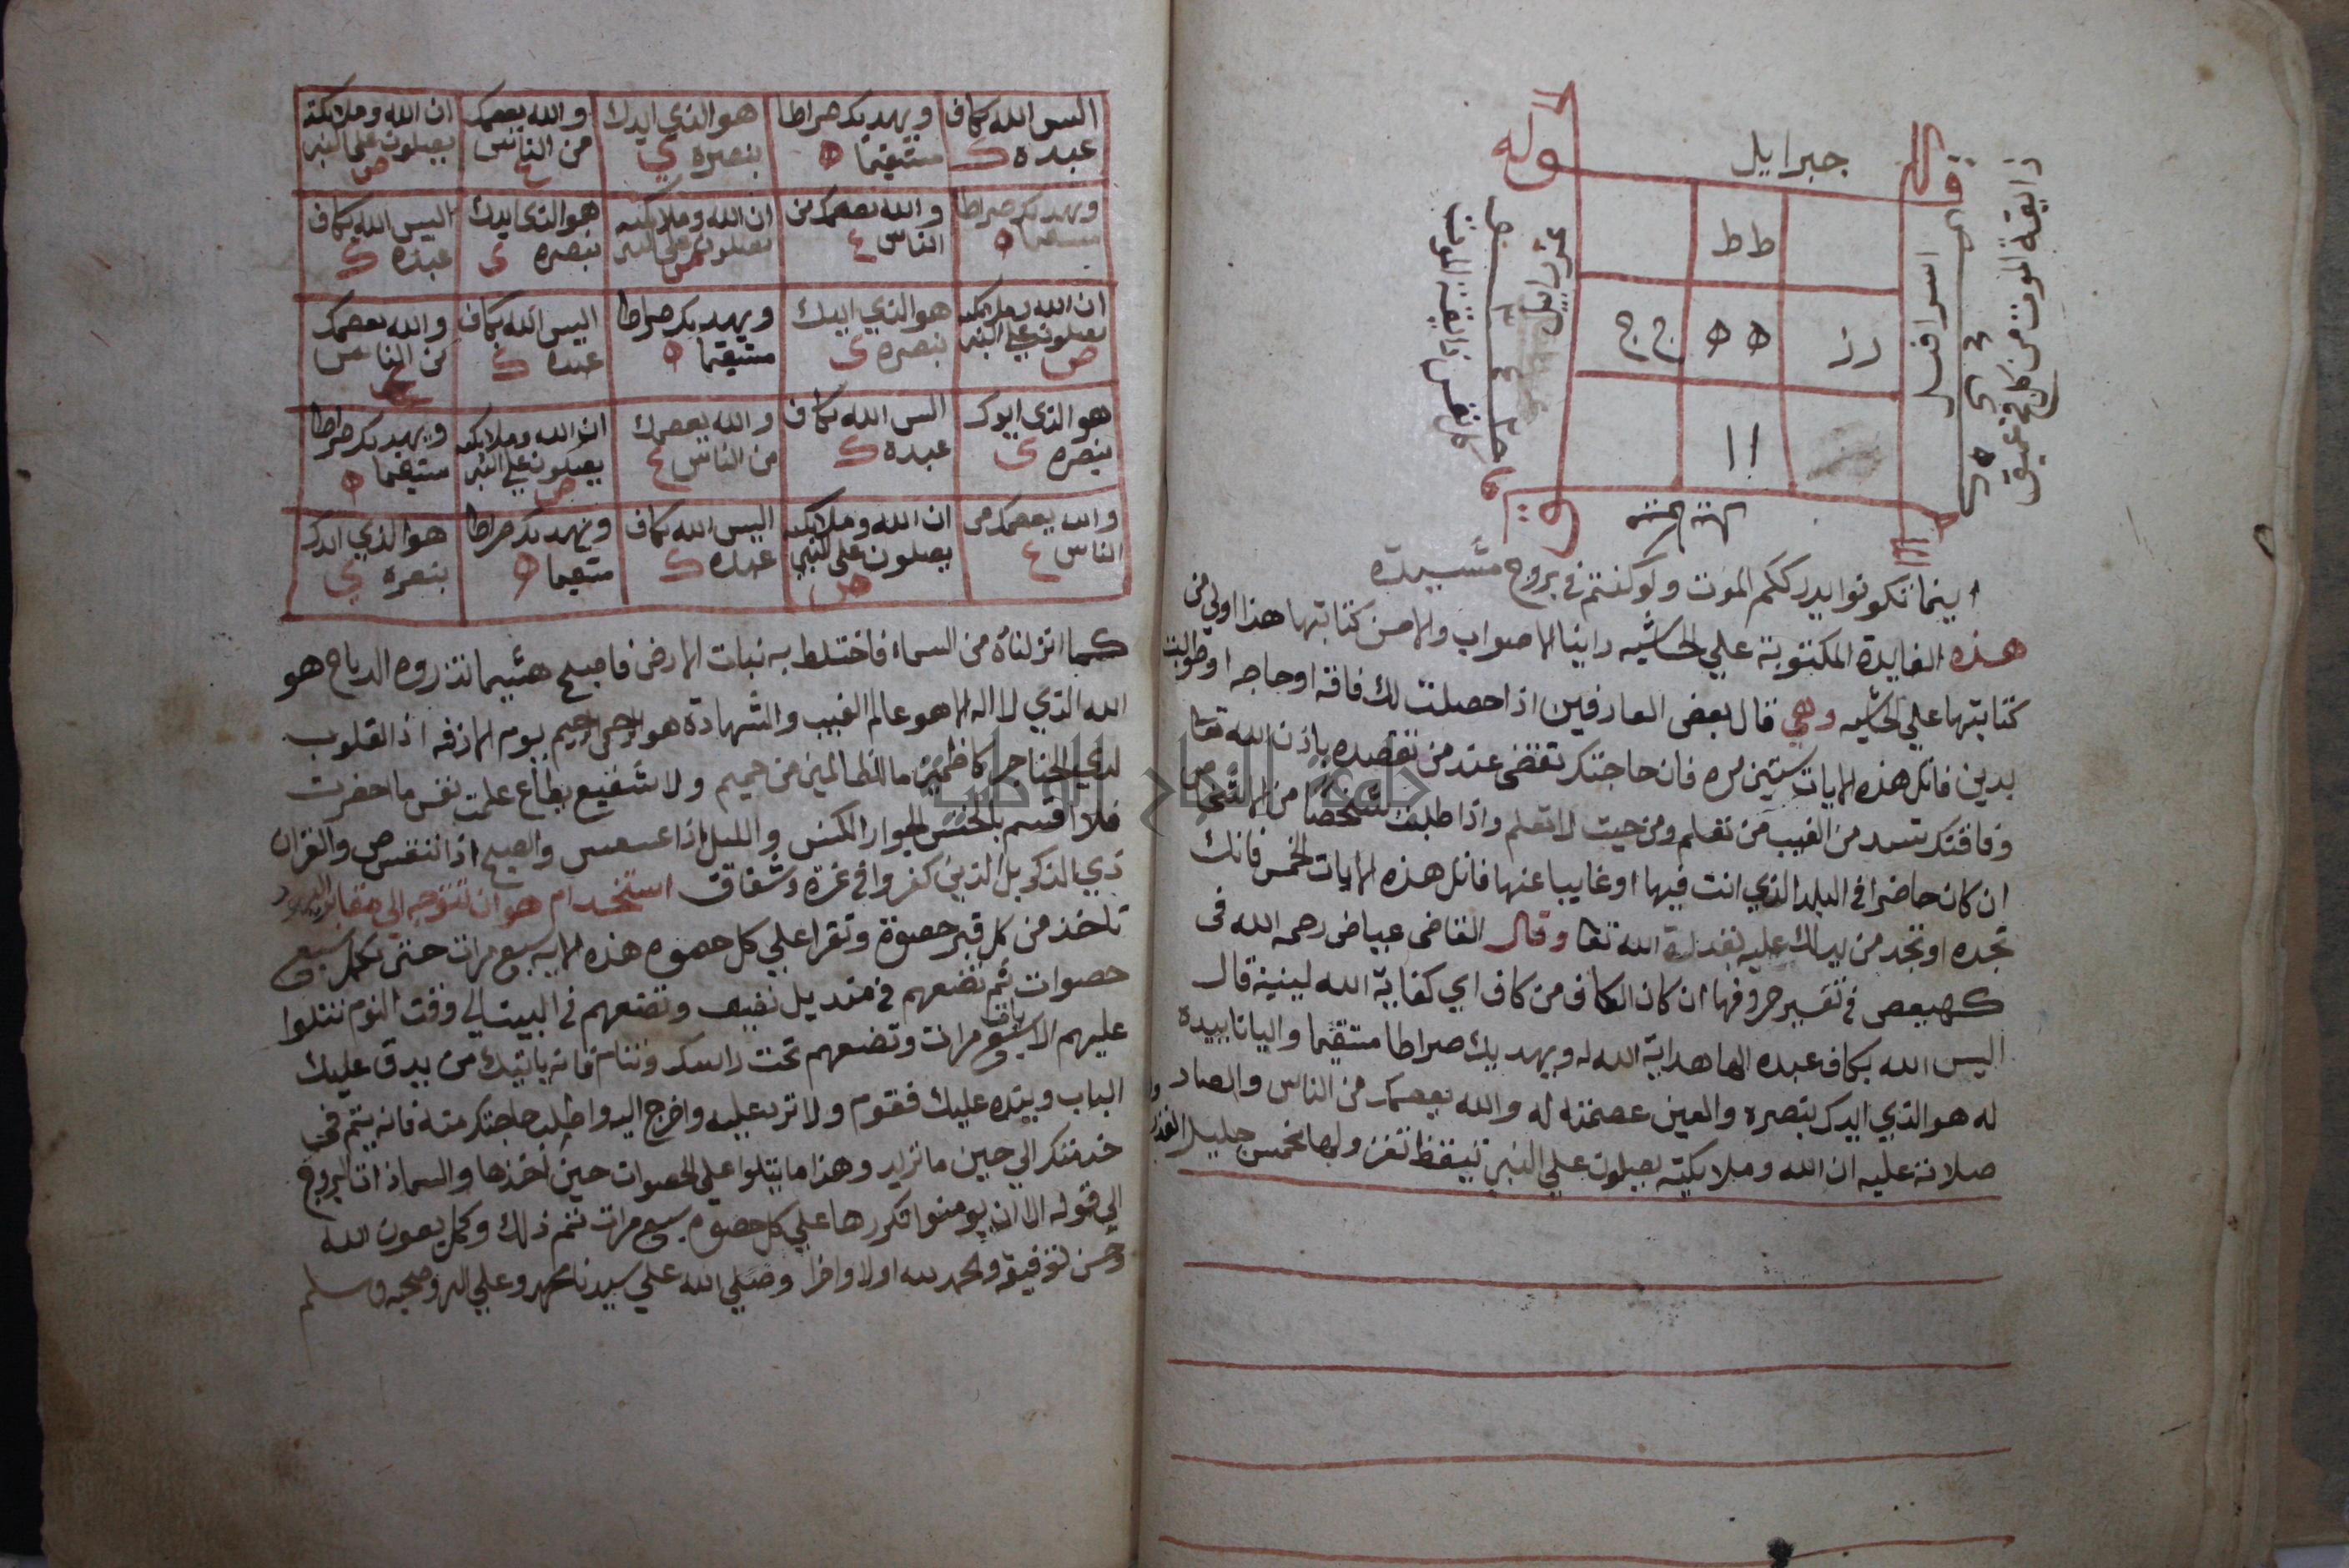 جبرايل
ذايقة الموت من كل فج عميق
اسرافيل
عزرايل
كل نفس ذايقة الموت
قوله
ط ط
د ز ه ه ج ج
ا ا
اينما تكونوا يدرككم الموت ولو كنتم في بروج مشيدة
هذه الفايدة المكتوبة علي الحاشيه راينا الاصواب والاحسن كتابتها هذا اولي من
كتابتها علي الحاشيه وهي قال بعض العارفين اذا حصلت لك فاقه او حاجه او طولبت
بدين فاتل هذه الايات ستين مره فان حاجتك تقضي عند من تقصده باذن الله تعا
وفاقتك تسد من الغيب من تعلم ومن حيث لا تعلم واذا طلبت شخصا من
ان كان حاضرا في البلد الذي انت فيها او غايبا عنها فاتل هذه الايات الخمس فانك
تجده او تجد من يدلك عليه بقدرة الله تعا وقال القاضي عياض رحمه الله في
كهيعص في تفسير حروفها ان كان الكاف من كاف اي كفاية الله لبنيه قال
اليس الله بكاف عبده الها هداية الله له ويهديك صراطا مستقيما واليا تاييده
له هو الذي ايدك بنصره والعين عصمته له والله يعصمك من الناس والصاد
صلاته عليه ان الله وملايكته يصلون علي النبي تيقظ تفز ولها مخمس جليل القدر
اليس الله بكاف عبده ك ويهديك صراطا مستقيما ه هو الذي ايدك بنصره ي والله يعصمك من الناس ع ان الله وملايكته يصلون علي النبي ص
ويهديك صراطا مستقيما ه والله يعصمك من الناس ع ان الله وملايكته يصلون علي النبي ص هو الذي ايدك بنصره ي اليس الله بكاف عبده ك
ان الله وملايكته يصلون علي النبي ص هو الذي ايدك بنصره ي ويهديك صراطا مستقيما ه اليس الله بكاف عبده ك والله يعصمك من الناس ع
هو الذي ايدك بنصره ي اليس الله بكاف عبده ك والله يعصمك من الناس ع ان الله وملايكته يصلون علي النبي ص ويهديك صراطا مستقيما ه
والله يعصمك من الناس ع ان الله وملايكته يصلون علي النبي ص اليس الله بكاف عبده ك ويهديك صراطا مستقيما ه هو الذي ايدك بنصره ي
كما انزلناه من السماء فاختلط به نبات الارض فاصبح هشيما تذروه الرياح هو
الله الذي لا اله الا هو عالم الغيب والشهادة هو الرحمن الرحيم يوم الازفه اذ القلوب
لدي الحناجر كاظمين ما للظالمين من حميم ولا شفيع يطاع علمت نفس ما احضرت
فلا اقسم بالخنس الجوار الكنس والليل اذا عسعس والصبح اذا تنفس ص والقران
ذي الذكر بل الذين كفروا في عزة وشقاق استخدام هو ان تتوجه الي مقابر اليهود
تاخذ من كل قبر حصوة وتقرا علي كل حصوه هذه الايه سبع مرات حتي تكمل سبع
حصوات ثم تضعهم في منديل نضيف وتضعهم في البيت الي وقت النوم تتلوا
عليهم الايات سبع مرات وتضعهم تحت راسك وتنام فانه ياتيك من يدق عليك
الباب وينده عليك فقوم ولا ترد عليه واخرج اليه واطلب حاجتك منه فانه يتم في
خدمتك الي حين ما تريد وهذا ما يتلوا علي الحصوات حين اخذها والسما ذات البروج
الي قوله الا ان يومنوا تكررها علي كل حصوه سبع مرات تتم ذلك وكمل بعون الله
وحسن توفيقه والحمد لله اولا واخرا وصلي الله علي سيدنا محمد وعلي اله وصحبه وسلم
جامعة النجاح الوطنية